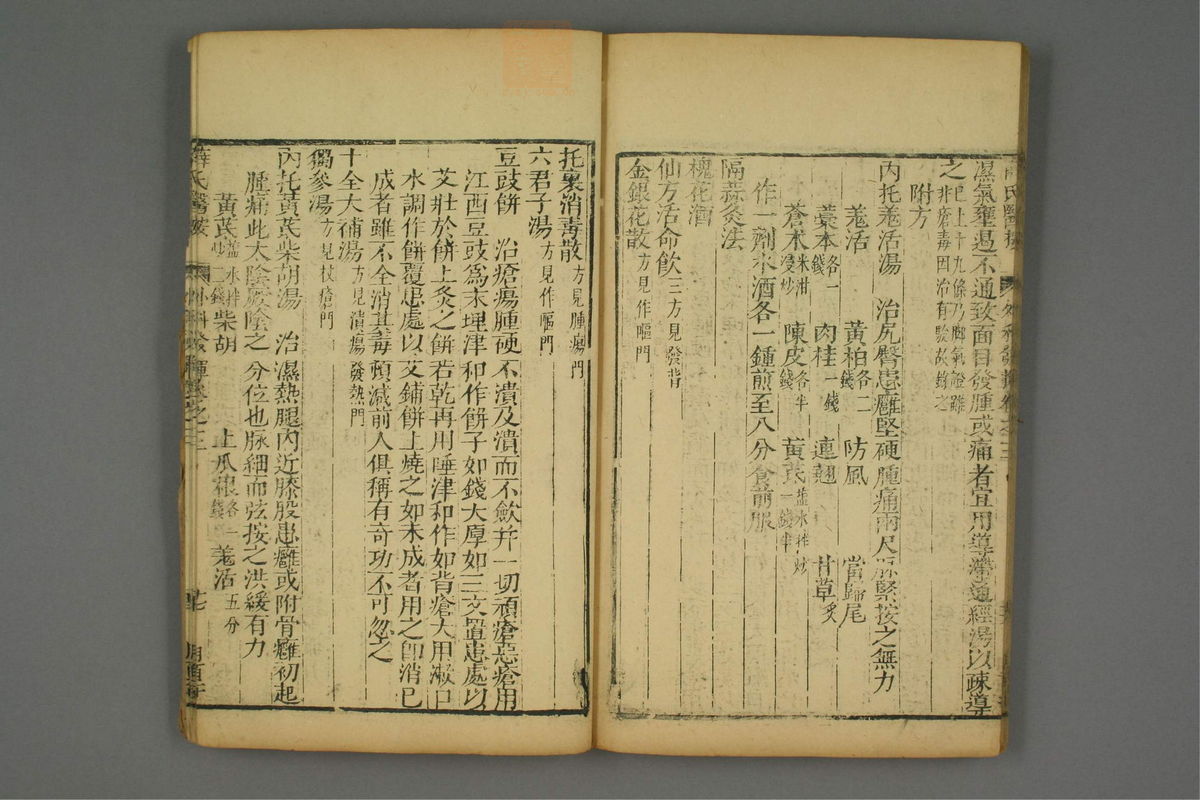 濕氣壅遏不通致面目發腫或痛者宜用導滯通經湯以疎導
之 已上十九條乃脚氣證雖非瘡毒因治有驗故錄之
附方
內托羗活湯 治尻臀患癰堅硬腫痛兩尺脉緊按之無力
羗活 黃柏各二錢 防風 當歸尾
藁本各一錢 肉桂一錢 連翹 甘草炙
蒼术米泔浸炒 陳皮各半錢 黃芪塩水拌炒一錢半
作一劑水酒各一鍾煎至八分食前服
隔蒜灸法
槐花酒
仙方活命飲三方見發背
金銀花散方見作嘔門
托裏消毒散方見腫瘍門
六君子湯方見作嘔門
豆豉餅 治瘡瘍腫硬不潰及潰而不歛并一切頑瘡惡瘡用
江西豆豉爲末唾津和作餅子如錢大厚如三文置患處以
艾壯於餅上灸之餅若乾再用唾津和作如背瘡大用漱口
水調作餅覆患處以艾鋪餅上燒之如未成者用之卽消已
成者雖不全消其毒頓減前人俱稱有奇功不可忽之
十全大補湯方見潰瘍發熱門
獨參湯方見杖瘡門
內托黃芪柴胡湯 治濕熱腿內近膝股患癰或附骨癰初起
腫痛此太陰厥陰之分位也脉細而弦按之洪緩有力
黃芪塩水拌炒二錢 柴胡 土瓜根各一錢 羗活五分
薛氏醫按 外科發揮卷之三